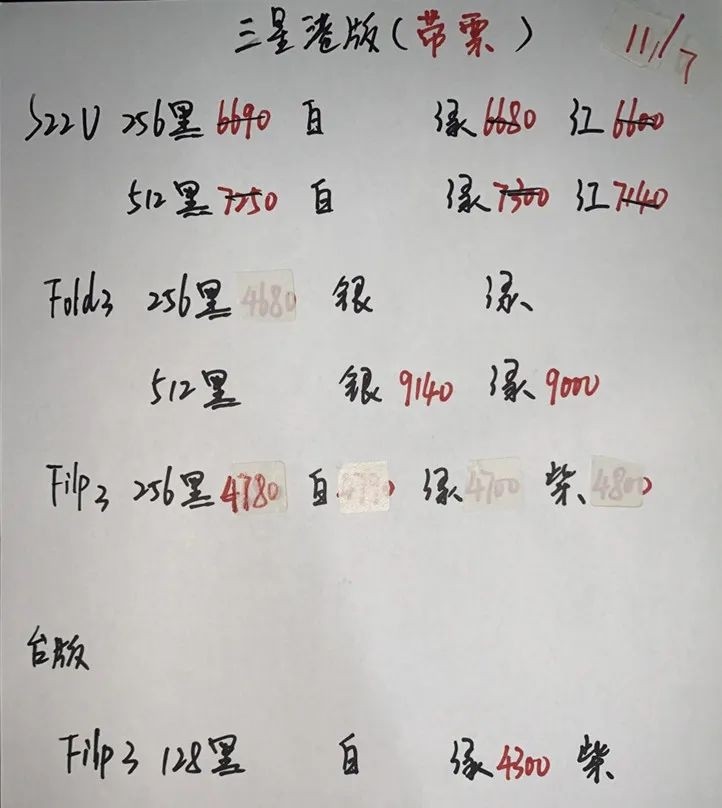 三星港版(带票) 11/7
S22U 256黑 6690 白 绿 6680 红 6600
512黑 7250 白 绿 7300 红 7140
Fold3 256黑 4680 银 绿
512黑 银 9140 绿 9000
Filp3 256黑 4780 白 绿 4700 柴 4800
台版
Filp3 128黑 白 绿 4300 柴